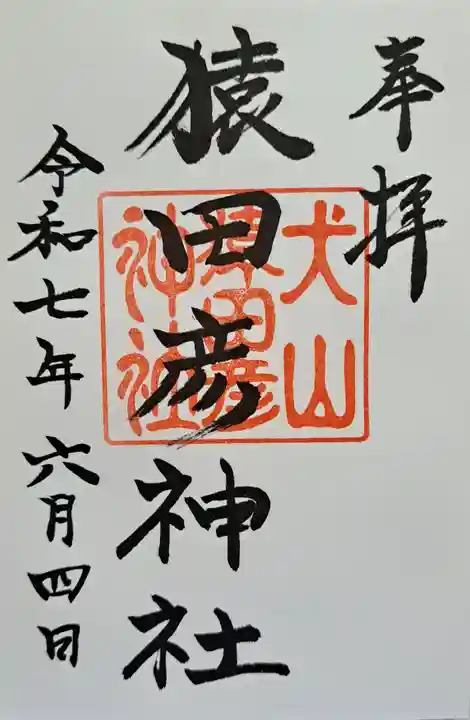 奉拝
犬山
猿田彦
神社
猿田彦神社
令和七年六月四日